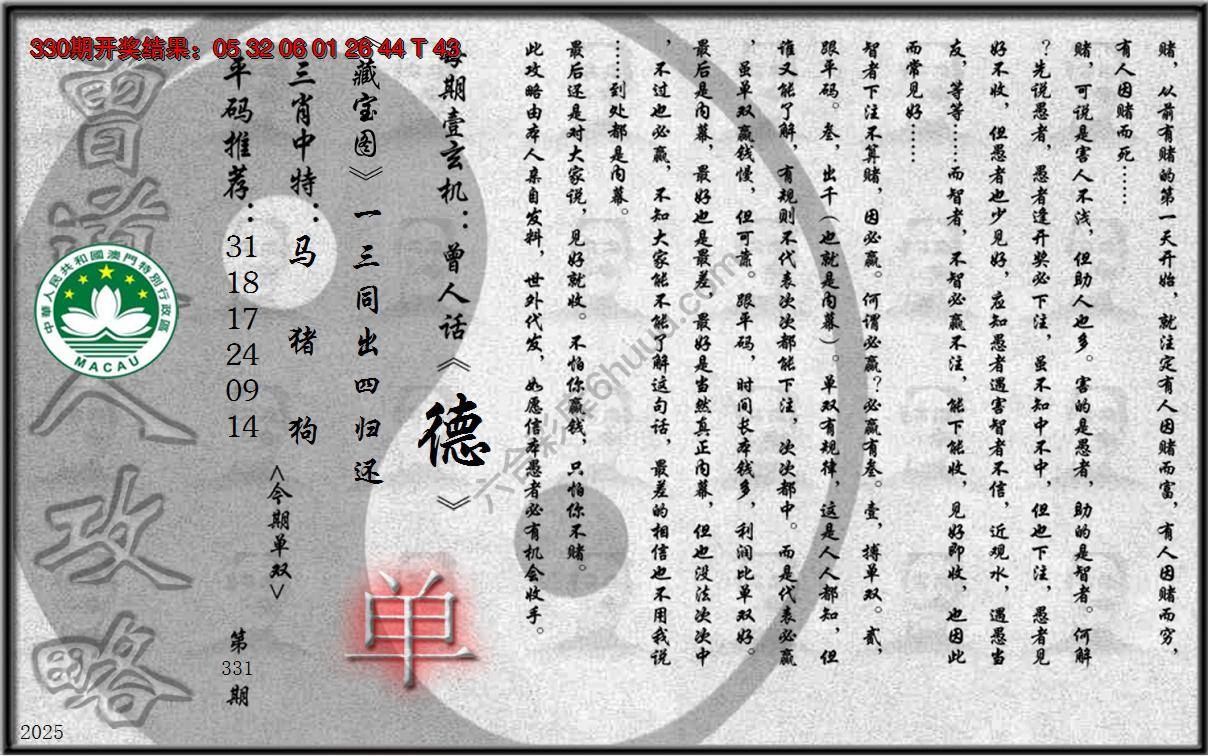 330期开奖结果：05 32 06 01 26 44 T 43
赌，从前有赌的第一天开始，就注定有人因赌而富，有人因赌而穷，
有人因赌而死……
赌，可说是害人不浅，但助人也多。害的是愚者，助的是智者。何解
？先说愚者，愚者逢开奖必下注，虽不知中不中，但也下注，愚者见
好不收，但愚者也少见好，应知愚者遇害智者不信，近观水，遇愚当
友，等等……而智者，不智必赢不注，能下能收，见好即收，也因此
而常见好……
智者下注不算赌，因必赢。何谓必赢？必赢有叁。壹，搏单双。贰，
跟平码。叁，出千（也就是内幕）。单双有规律，这是人人都知，但
谁又能了解，有规则不代表次次都能下注，次次都中。而是代表必赢
，虽单双赢钱慢，但可靠。跟平码，时间长本钱多，利润比单双好。
最后是内幕，最好也是最差，最好是当然真正内幕，但也没法次次中
，不过也必赢，不知大家能不能了解这句话，最差的相信也不用我说
……到处都是内幕。
最后还是对大家说，见好就收。不怕你赢钱，只怕你不赌。
此攻略由本人亲自发料，世外代发，如愿信本愚者必有机会收手。
每期壹玄机：曾人话《德》
《藏宝图》一三同出四归还
三肖中特：马 猪 狗
平码推荐：
31
18
17
24
09
14
<今期单双>
单
第
331
期
曾道人攻略
中華人民共和國澳門特別行政區
MACAU
六合彩库6huuu.com
2025